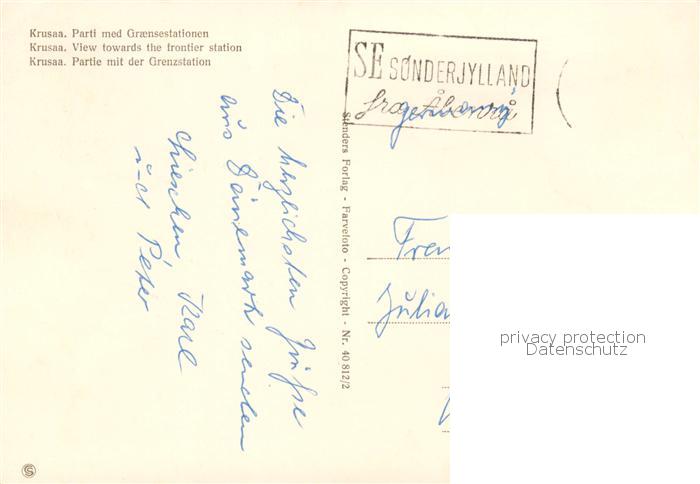 Krusaa. Parti med Grænsestationen
Krusaa. View towards the frontier station
Krusaa. Partie mit der Grenzstation
SE SØNDERJYLLAND
Die herzlichsten Grüße
aus Dänemark senden
Lieschen, Karl
und Peter
Stenders Forlag - Farvefoto - Copyright - Nr. 40 812/2
privacy protection
Datenschutz